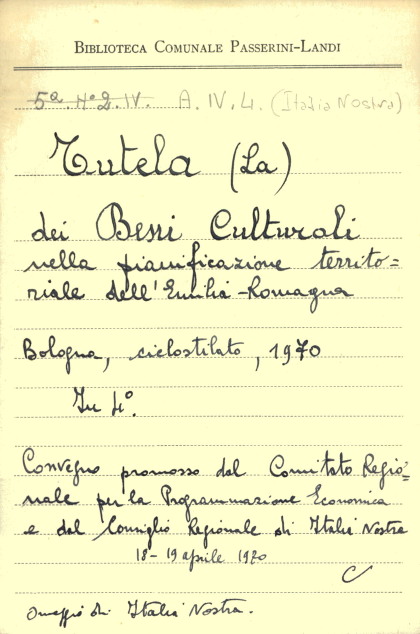 BIBLIOTECA COMUNALE PASSERINI-LANDI
5ª. Nº 2. IV. A. IV. 4. (Italia Nostra)
Tutela (La)
dei Beni Culturali
nella pianificazione territo=
riale dell'Emilia-Romagna
Bologna, ciclostilato, 1970
In 4º.
Convegno promosso dal Comitato Regio=
nale per la Programmazione Economica
e dal Consiglio Regionale di Italia Nostra
18-19 aprile 1970
C
Omaggio di Italia Nostra.